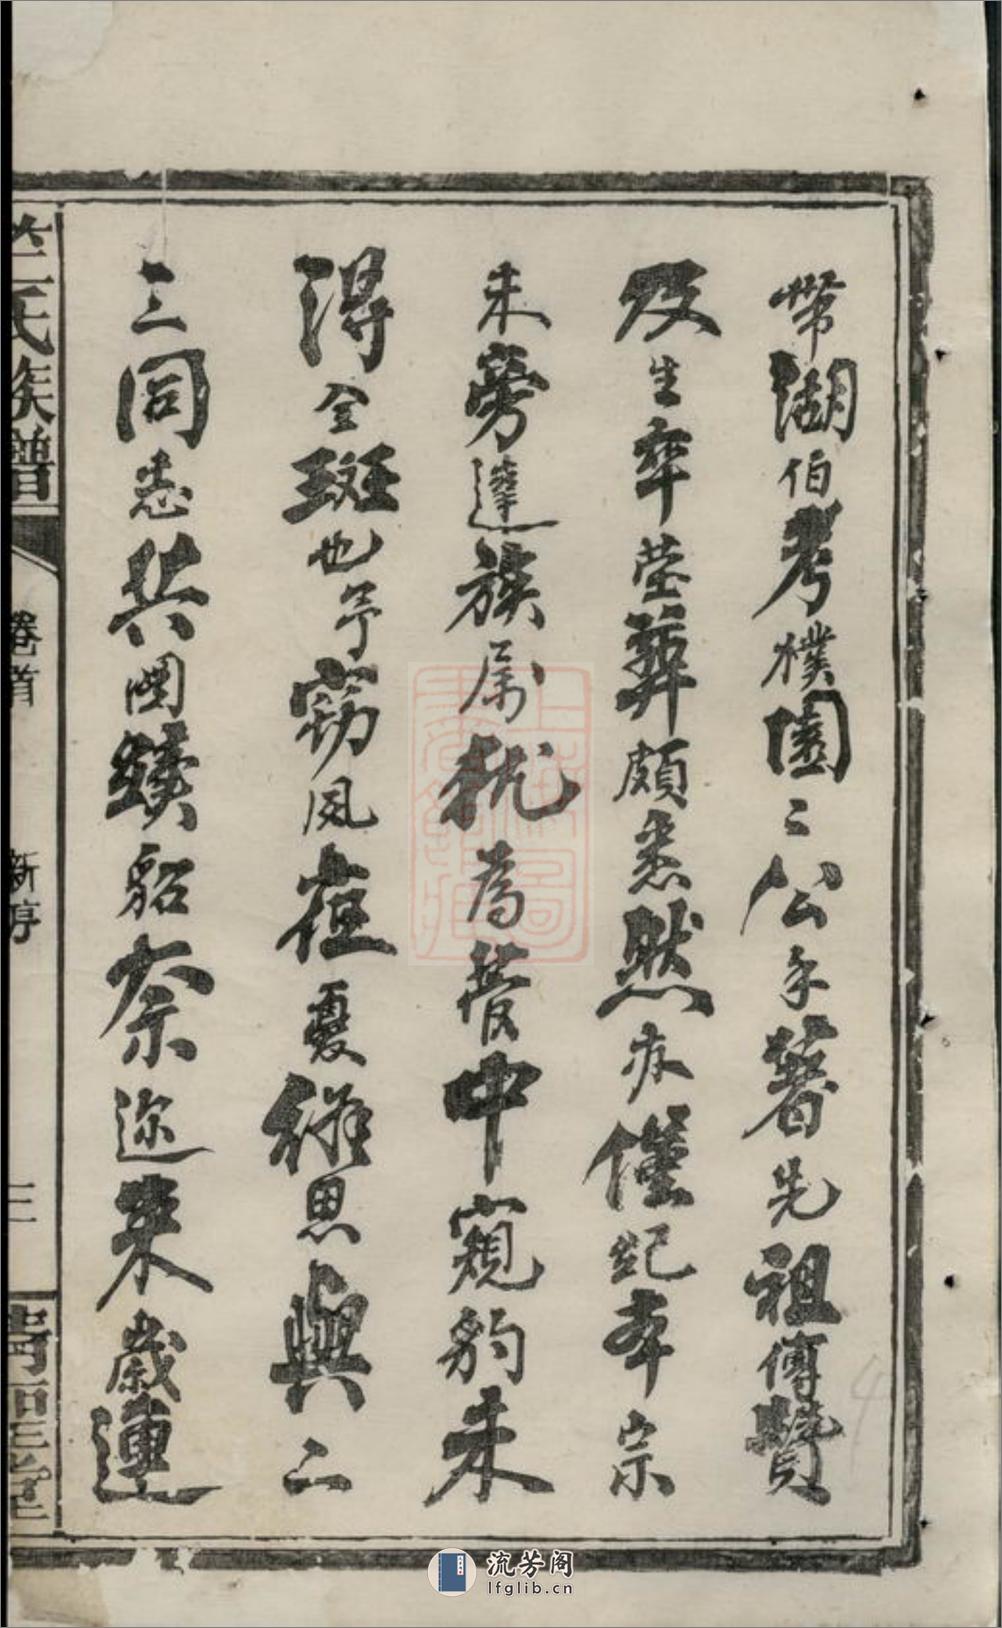 帶湖伯考樸園二公手著先祖傳贊
及生卒塋葬頗悉然亦僅紀本宗
未旁達族屬抗為管中窺豹未
得全斑也予竊夙夜憂
思與二
三同志共圖續貂奈迩来歲連
氏族譜
卷首
新序
三
流芳阁
lfglib.cn